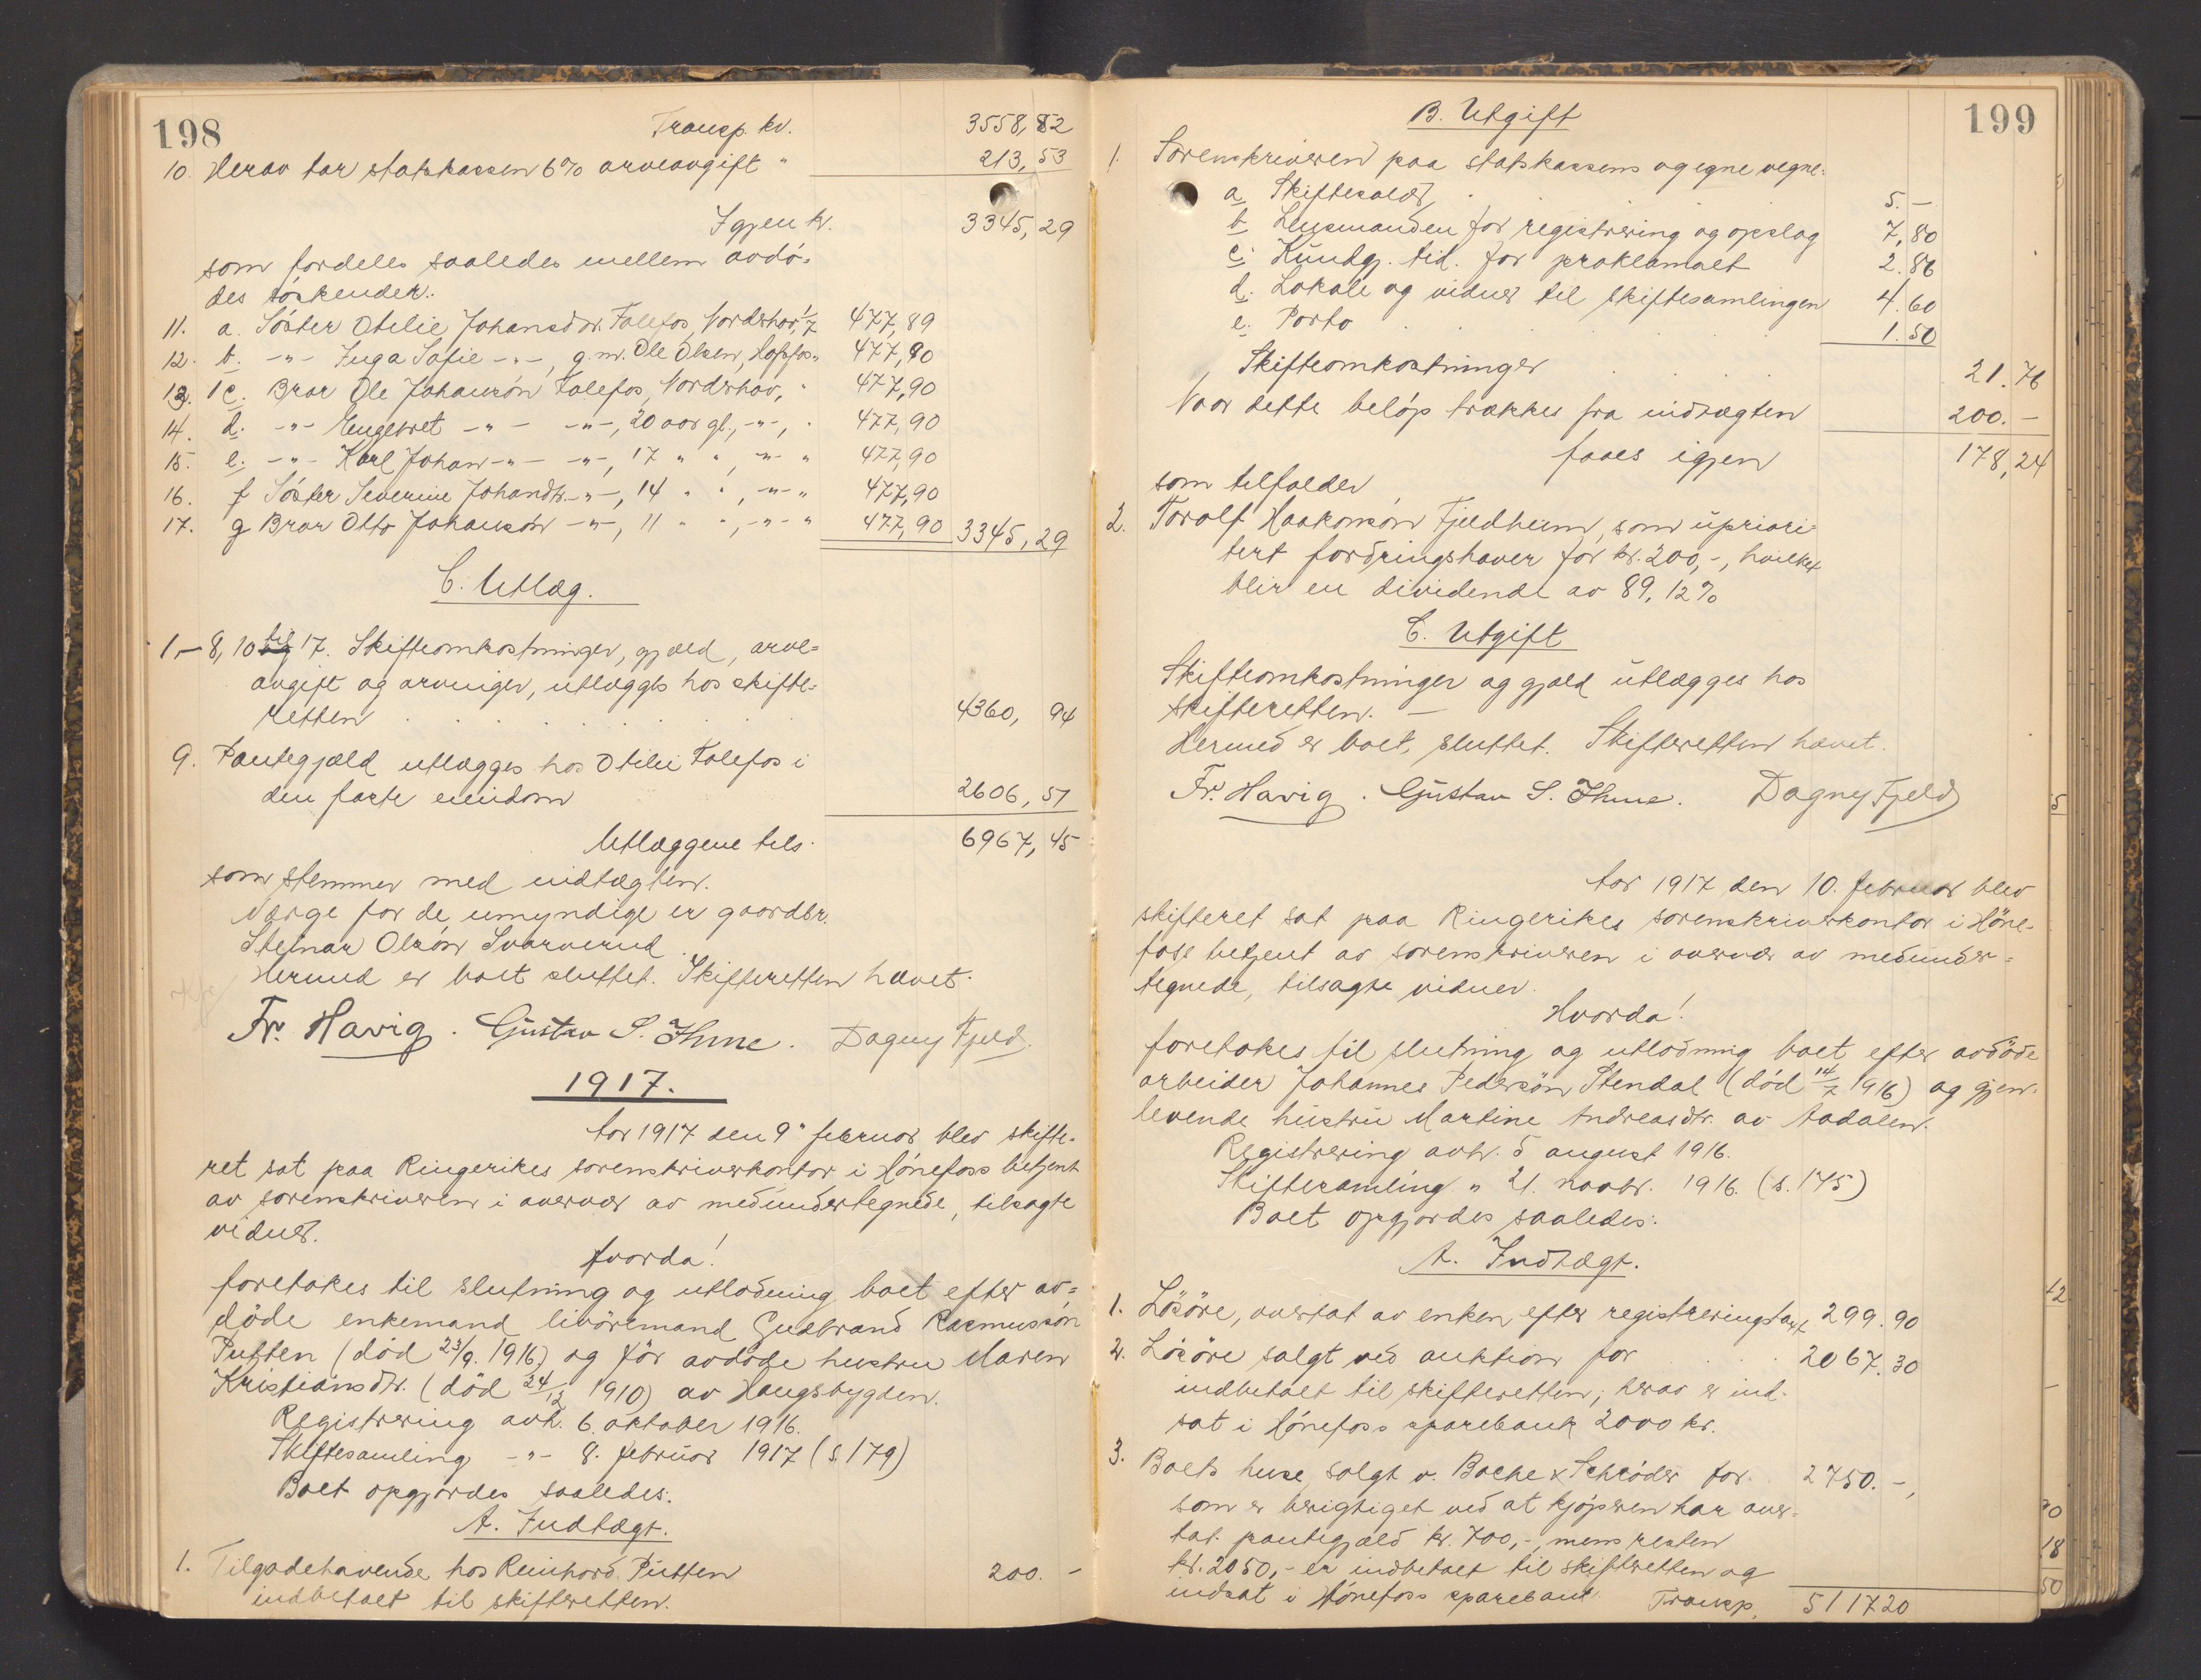 198
Transp. kr. 3558,82
10. Herav tar statskassen 6% arveavgift " 213,53
Igjen kr. 3345,29
som fordeles saaledes mellem avdö-
des söskender:
11. a. Söster Otelie Johansdtr. Folefos, Norderhov, 1/7 477,89
12. b. -"- Inga Sofie -"-, g.m. Ole Olsen, Hofsfos " 477,90
13. c. Bror Ole Johansön Folefos, Norderhov, " 477,90
14. d. -"- Engebret -"- -"-, 20 aar gl., -"-, " 477,90
15. e. -"- Karl Johan -"- -"-, 17 " ", -"- " 477,90
16. f Söster Severine Johansdtr. -"-, 14 " ", -"- " 477,90
17. g Bror Otto Johansön -"-, 11 " ", -"- " 477,90 3345,29
C. Utlæg.
1-8, 10 til 17. Skifteomkostninger, gjæld, arve=
avgift og arvinger, utlægges hos skifte-
retten 4360,94
9. Pantegjæld utlægges hos Otelie Folefos i
den faste eiendom 2606,51
Utlæggene tils. 6967,45
som stemmer med indtægten.
Værge for de umyndige er gaardbr.
Steinar Olsön Svarverud.
Hermed er boet sluttet. Skifteretten hævet.
Fr. Havig. Gustav S. Ihme. Dagny Fjeld.
1917.
Aar 1917 den 9" februar blev skifte-
ret sat paa Ringerikes sorenskriverkontor i Hönefoss betjent
av sorenskriveren i overvær av medundertegnede, tilsagte
vidner.
Hvorda!
foretokes til slutning og utlodning boet efter av=
döde enkemand livöremand Gudbrand Rasmussön
Putten (död 23/9. 1916) og för avdöde hustru Maren
Kristiansdtr. (död 24/12 1910) av Haugsbygden.
Registrering avh. 6. oktober 1916.
Skiftesamling -"- 8. februar 1917 (s. 179)
Boet opgjordes saaledes:
A. Indtægt.
1. Tilgodehavende hos Reinhard Putten 200.-
indbetalt til skifteretten.
199
B. Utgift
1. Sorenskriveren paa statskassens og egne vegne:
a. Skiftesalær 5.-
b. Lensmanden for registrering og opslag 7,80
c. Kundgj. tid. for proklamaet 2.86
d. Lokale og vidner til skiftesamlingen 4.60
e. Porto 1.50
Skifteomkostninger 21.76
Naar dette beløp trækkes fra indtægten 200.-
faaes igjen 178,24
som tilfalder
2. Torolf Haakonsön Fjeldheim, som upriori-
tert fordringshaver for kr. 200,-, hvilket
blir en dividende av 89,12%
C. Utgift
Skifteomkostninger og gjæld utlægges hos
skifteretten. -
Hermed er boet sluttet. Skifteretten hævet.
Fr. Havig. Gustav S. Ihme. Dagny Fjeld
Aar 1917 den 10. februar blev
skifteret sat paa Ringerikes sorenskriverkontor i Höne-
foss betjent av sorenskriveren i overvær av medunder=
tegnede, tilsagte vidner.
Hvorda!
foretokes til slutning og utlodning boet efter avdöde
arbeider Johannes Pedersön Stendal (död 14/7 1916) og gjen-
levende hustru Martine Andreasdtr. av Aadalen.
Registrering avh. 5 august 1916.
Skiftesamling " 21. novbr. 1916. (s. 145)
Boet opgjordes saaledes:
A. Indtægt.
1. Lösöre, overtat av enken efter registreringstakst 299.90
2. Lösöre solgt ved auktion for 2067.30
indbetalt til skifteretten; herav er ind-
sat i Hönefoss sparebank 2000 kr.
3. Boets huse, solgt v. Boche & Schröder for 2750.-,
som er berigtiget ved at kjöperen har over-
tat pantegjæld kr. 700,-, mens resten
kr. 2050,- er indbetalt til skifteretten og
indsat i Hönefoss sparebank. Transp. 5117 20